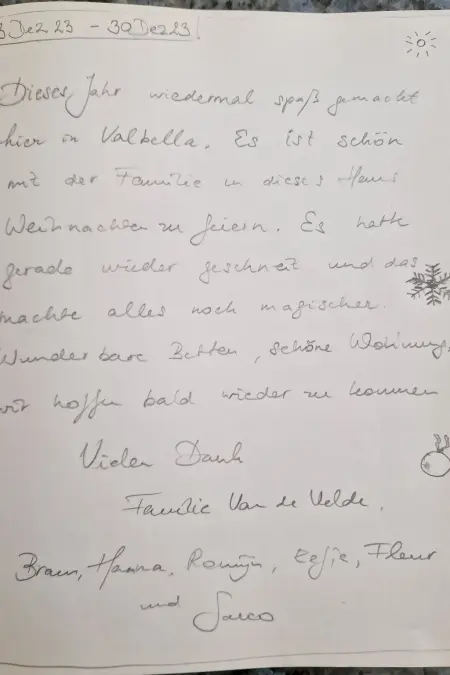 3 Dez 23 - 30 Dez 23!
Dieses Jahr wiedermal spaß gemacht
hier in Valbella. Es ist schön
mit der Familie in dieses Haus
Weihnachten zu feiern. Es hatte
gerade wieder geschneit und das
machte alles noch magischer.
Wunderbare Betten, schöne Wohnung,
wir hoffen bald wieder zu kommen
Vielen Dank
Familie Van de Velde.
Bram, Hanna, Romijn, Eefje, Fleur
und